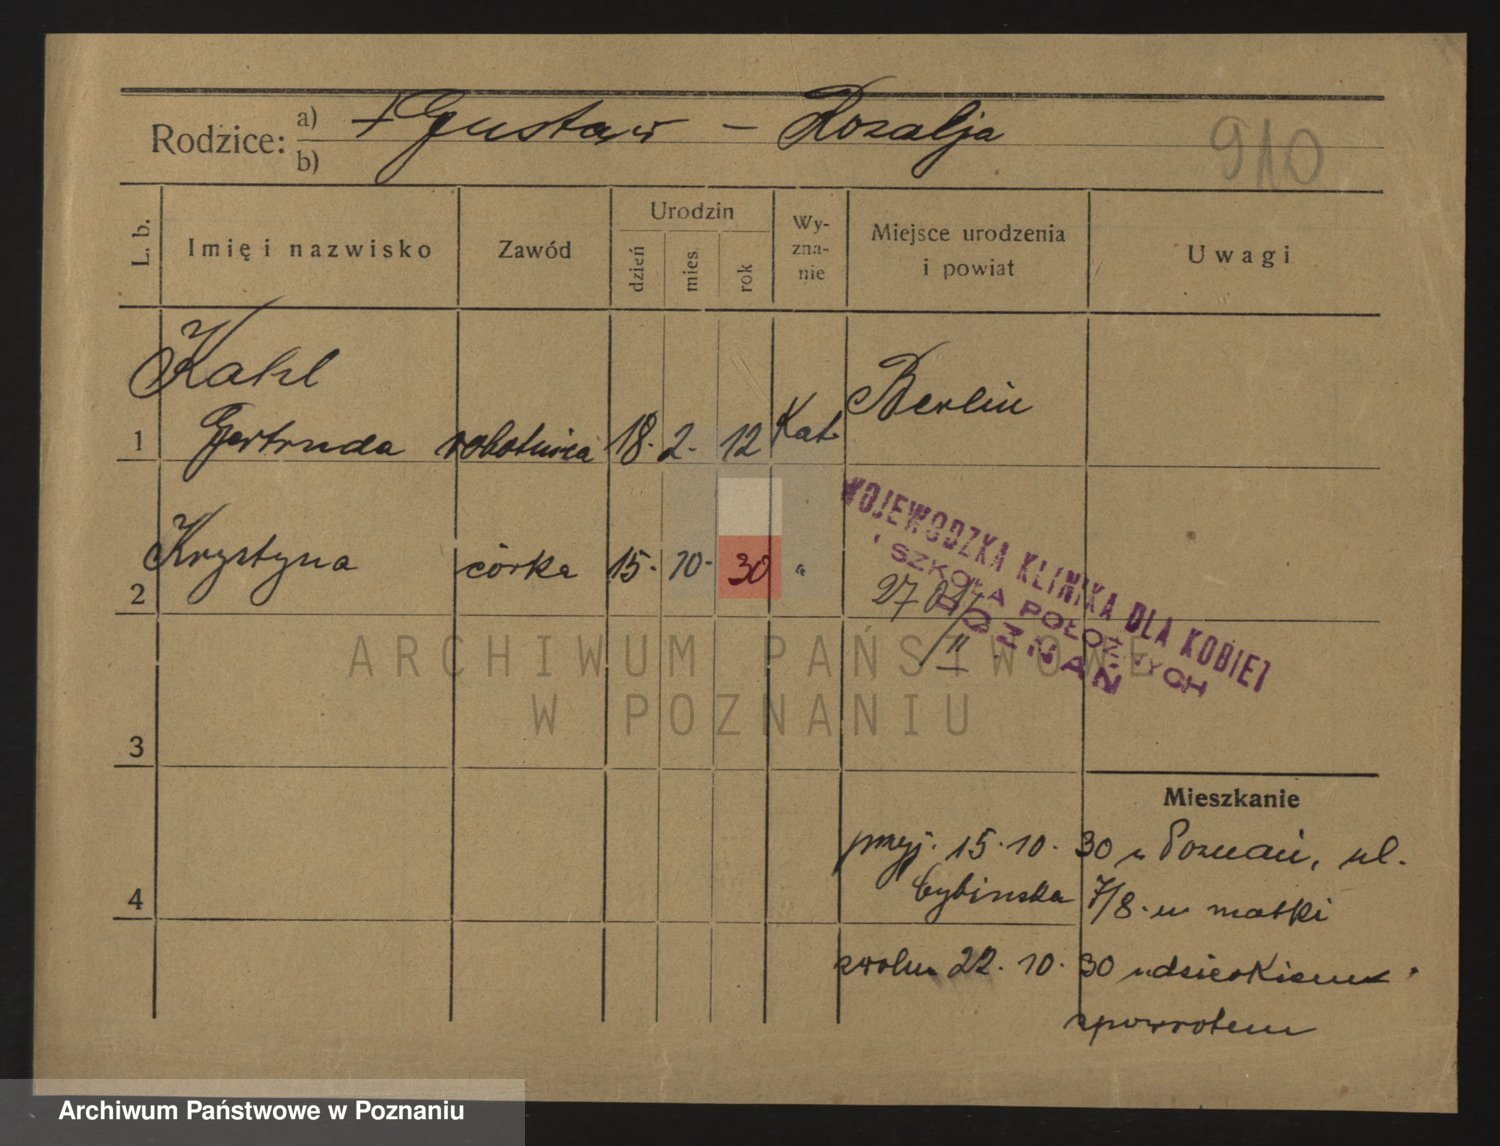 Rodzice: a) + Gustaw – Rozalja
b)
910
L. b. Imię i nazwisko Zawód Urodzin dzień mies. rok Wy-zna-nie Miejsce urodzenia i powiat Uwagi
Kahl
1 Gertruda robotnica 18. 2. 12 Kat. Berlin
2 Krystyna córka 15. 10. 30 "
WOJEWÓDZKA KLINIKA DLA KOBIET
I SZKOŁA POŁOŻNYCH
POZNAŃ
27
II
3
Mieszkanie
przyj. 15. 10. 30 z Poznań, ul.
4 Cybinska 7/8. u matki
zwoln. 22. 10. 30 z dzieckiem
zpowrotem
ARCHIWUM PAŃSTWOWE
W POZNANIU
Archiwum Państwowe w Poznaniu